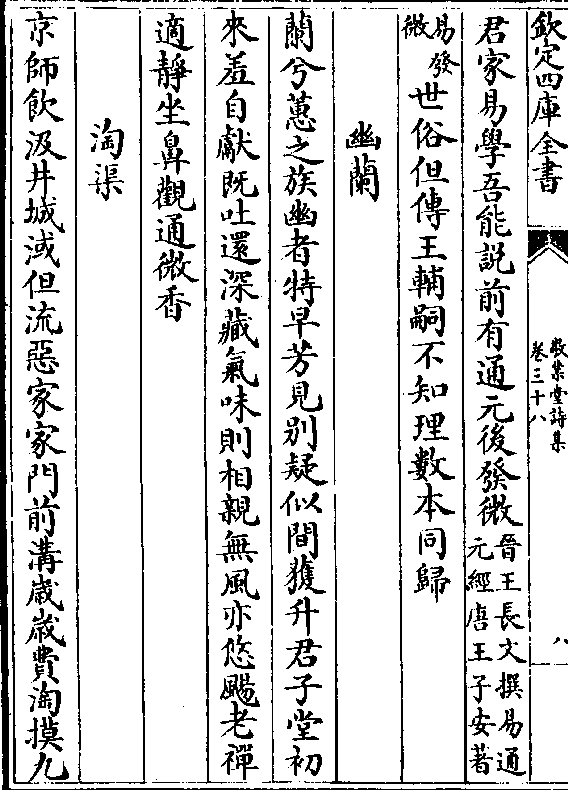 欽定四庫全書
敬業堂詩集
卷三十八
八
君家易學吾能説前有通元後發微晉王長文撰易通
元經唐王子安著
易發
微世俗但傳王輔嗣不知理數本同歸
幽蘭
蘭兮蕙之族幽者特早芳見别疑似間獲升君子堂初
來羞自獻既吐還深藏氣味則相親無風亦悠颺老禪
適靜坐鼻觀通微香
淘渠
京師飲汲井城淢但流惡家家門前溝歳歳費淘摸九